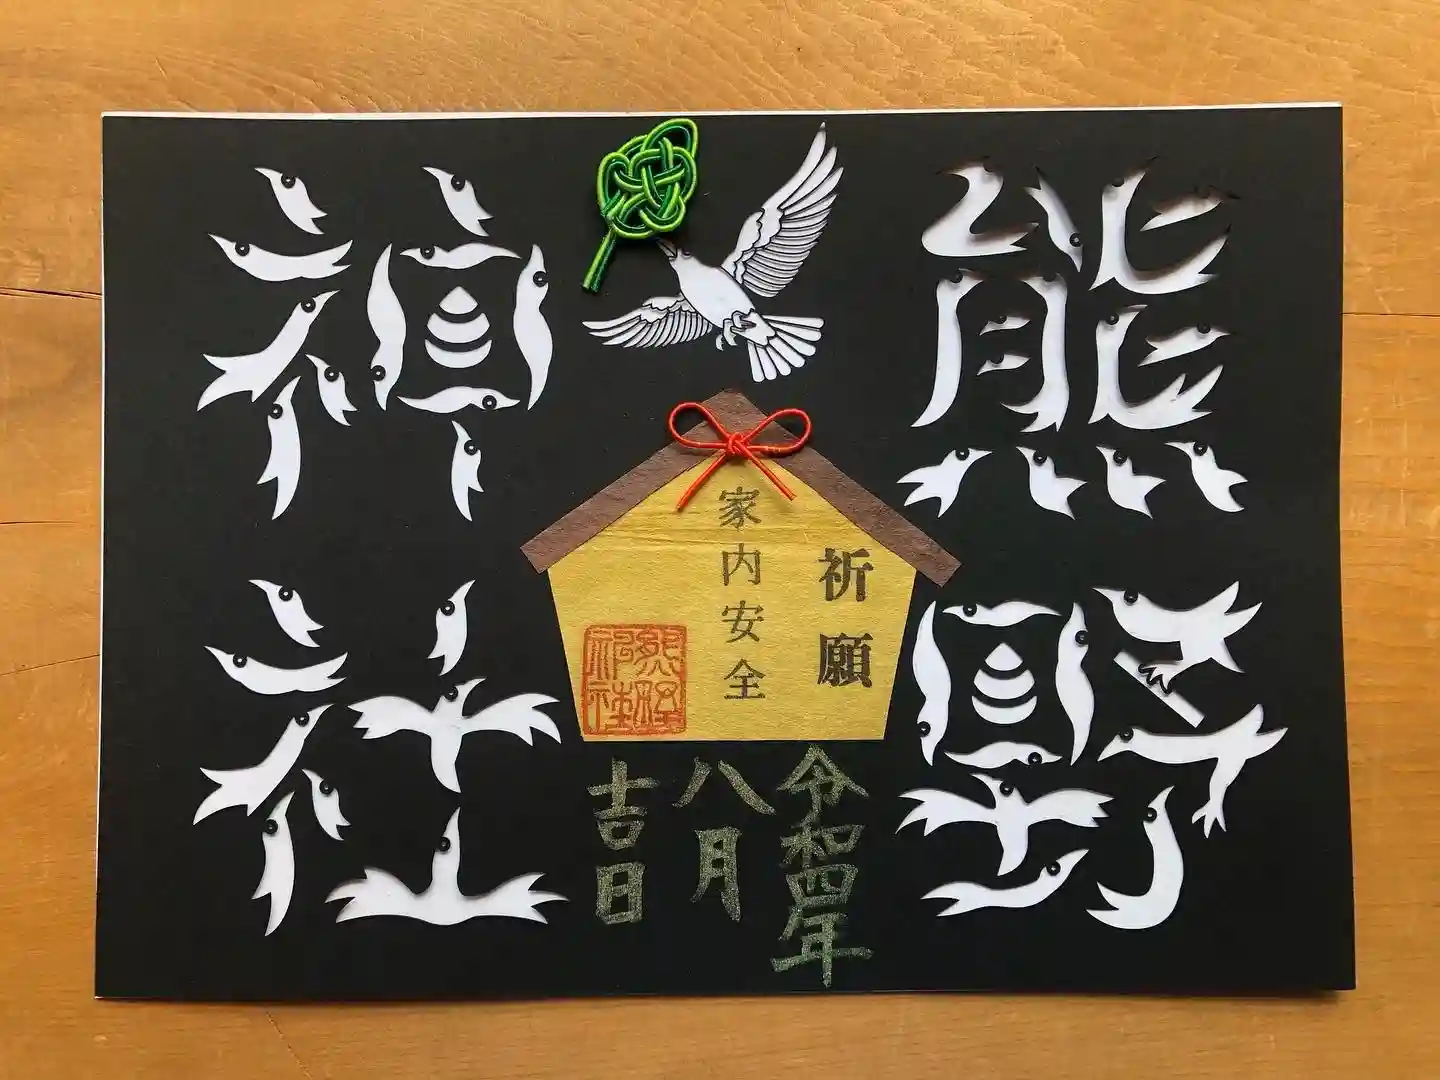 熊野
神社
祈願
家内安全
熊野
神社
令和四年
八月
吉日